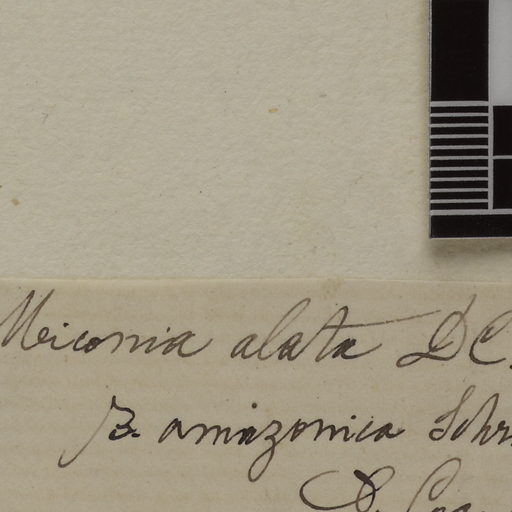 Miconia alata DC.
β. amazonica Schr